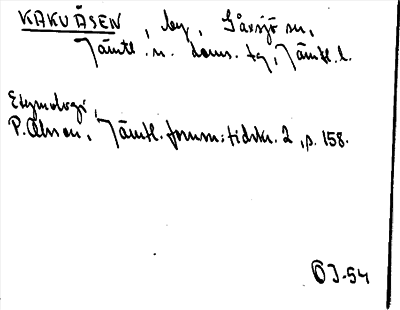 KAKUÅSEN, by, Gåxsjö sn,
Jämtl. n. doms. tg, Jämtl. l.
Etymologi,
P. Olsson, Jämtl. fornm:tidskr. 2, p. 158.
OJ-54